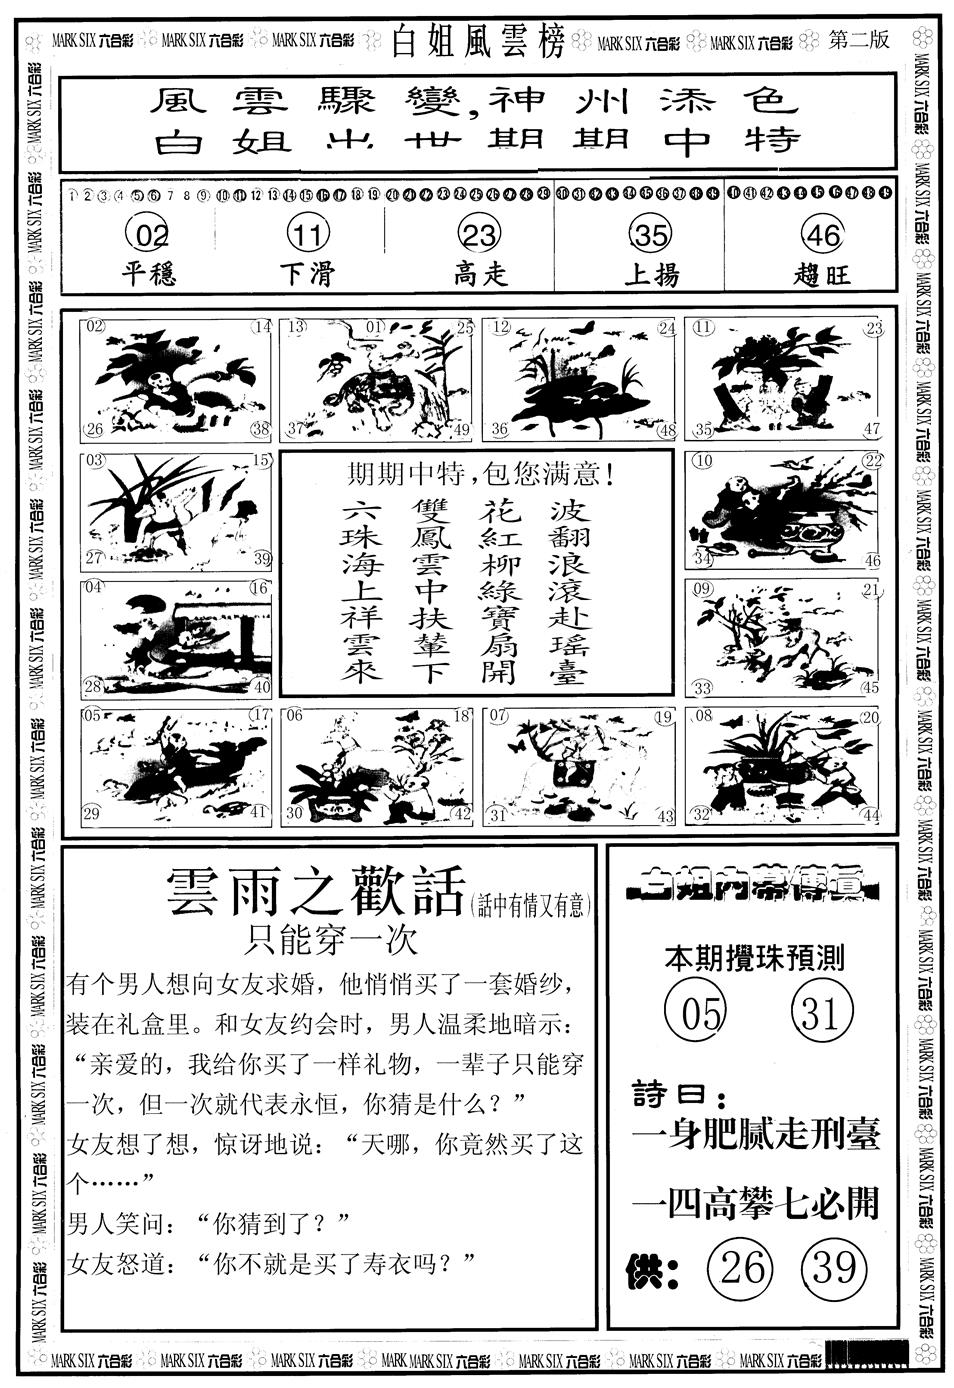 MARK SIX 六合彩 MARK SIX 六合彩 MARK SIX 六合彩 白姐風雲榜 MARK SIX 六合彩 MARK SIX 六合彩 第二版
風雲驟變,神州添色
白姐出世期期中特
1 2 3 4 5 6 7 8 9 10 11 12 13 14 15 16 17 18 19 20 21 22 23 24 25 26 27 28 29 30 31 32 33 34 35 36 37 38 39 40 41 42 43 44 45 46 47 48 49
02 11 23 35 46
平穩 下滑 高走 上揚 趨旺
02 14 13 01 25 12 24 11 23
26 38 37 49 36 48 35 47
03 15
27 39
04 16
28 40
期期中特,包您满意!
波翻浪滾赴瑶臺
花紅柳綠寶扇開
雙鳳雲中扶輦下
六珠海上祥雲來
10 22
34 46
09 21
33 45
05 17 06 18 07 19 08 20
29 41 30 42 31 43 32 44
雲雨之歡話(話中有情又有意)
只能穿一次
有个男人想向女友求婚，他悄悄买了一套婚纱，
装在礼盒里。和女友约会时，男人温柔地暗示：
“亲爱的，我给你买了一样礼物，一辈子只能穿
一次，但一次就代表永恒，你猜是什么？”
女友想了想，惊讶地说：“天哪，你竟然买了这
个……”
男人笑问：“你猜到了？”
女友怒道：“你不就是买了寿衣吗？”
白姐内幕傳真
本期攪珠預測
05 31
詩曰：
一身肥腻走刑臺
一四高攀七必開
供：26 39
MARK SIX 六合彩 MARK SIX 六合彩 MARK SIX 六合彩 MARK MARK SIX 六合彩 MARK SIX 六合彩 MARK SIX 六合彩 MARK SIX 六合彩